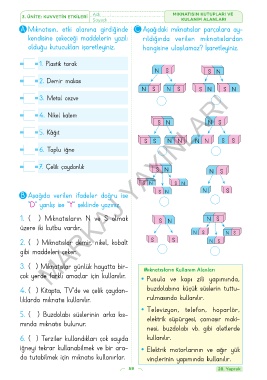 3. ÜNİTE: KUVVETİN ETKİLERİ
MIKNATISIN KUTUPLARI VE
KULANIM ALANLARI
A Mıknatısın, etki alanına girdiğinde
kendisine çekeceği maddelerin yazılı
olduğu kutucukları işaretleyiniz.
1. Plastik tarak
2. Demir makas
3. Metal cezve
4. Nikel kalem
5. Kâğıt
6. Toplu iğne
7. Çelik çaydanlık
B Aşağıda verilen ifadeler doğru ise
"D" yanlış ise "Y" şeklinde yazınız.
1. ( ) Mıknatısların N ve S olmak
üzere iki kutbu vardır.
2. ( ) Mıknatıslar demir, nikel, kobalt
gibi maddeleri çeker.
3. ( ) Mıknatıslar günlük hayatta bir-
çok yerde farklı amaçlar için kullanılır.
4. ( ) Kitapta, TV'de ve çelik çaydan-
lıklarda mıknatıs kullanılır.
5. ( ) Buzdolabı süslerinin arka kıs-
mında mıknatıs bulunur.
6. ( ) Terziler kullandıkları çok sayıda
iğneyi tekrar kullanabilmek ve bir ara-
da tutabilmek için mıknatıs kullanırlar.
C Aşağıdaki mıknatıslar parçalara ay-
rıldığında verilen mıknatıslardan
hangisine ulaşılamaz? İşaretleyiniz.
N S
S N
N S N S
S N S N
S N
N S
S S N N
N N S S
S N
N S
S N S N
S N
N S
S N
N S
S S
N S N S
S N
Mıknatısların Kullanım Alanları
Pusula ve kapı zili yapımında,
buzdolabına küçük süslerin tuttu-
rulmasında kullanılır.
Televizyon, telefon, hoparlör,
elektrik süpürgesi, çamaşır maki-
nesi, buzdolabı vb. gibi aletlerde
kullanılır.
Elektrik motorlarının ve ağır yük
vinçlerinin yapımında kullanılır.